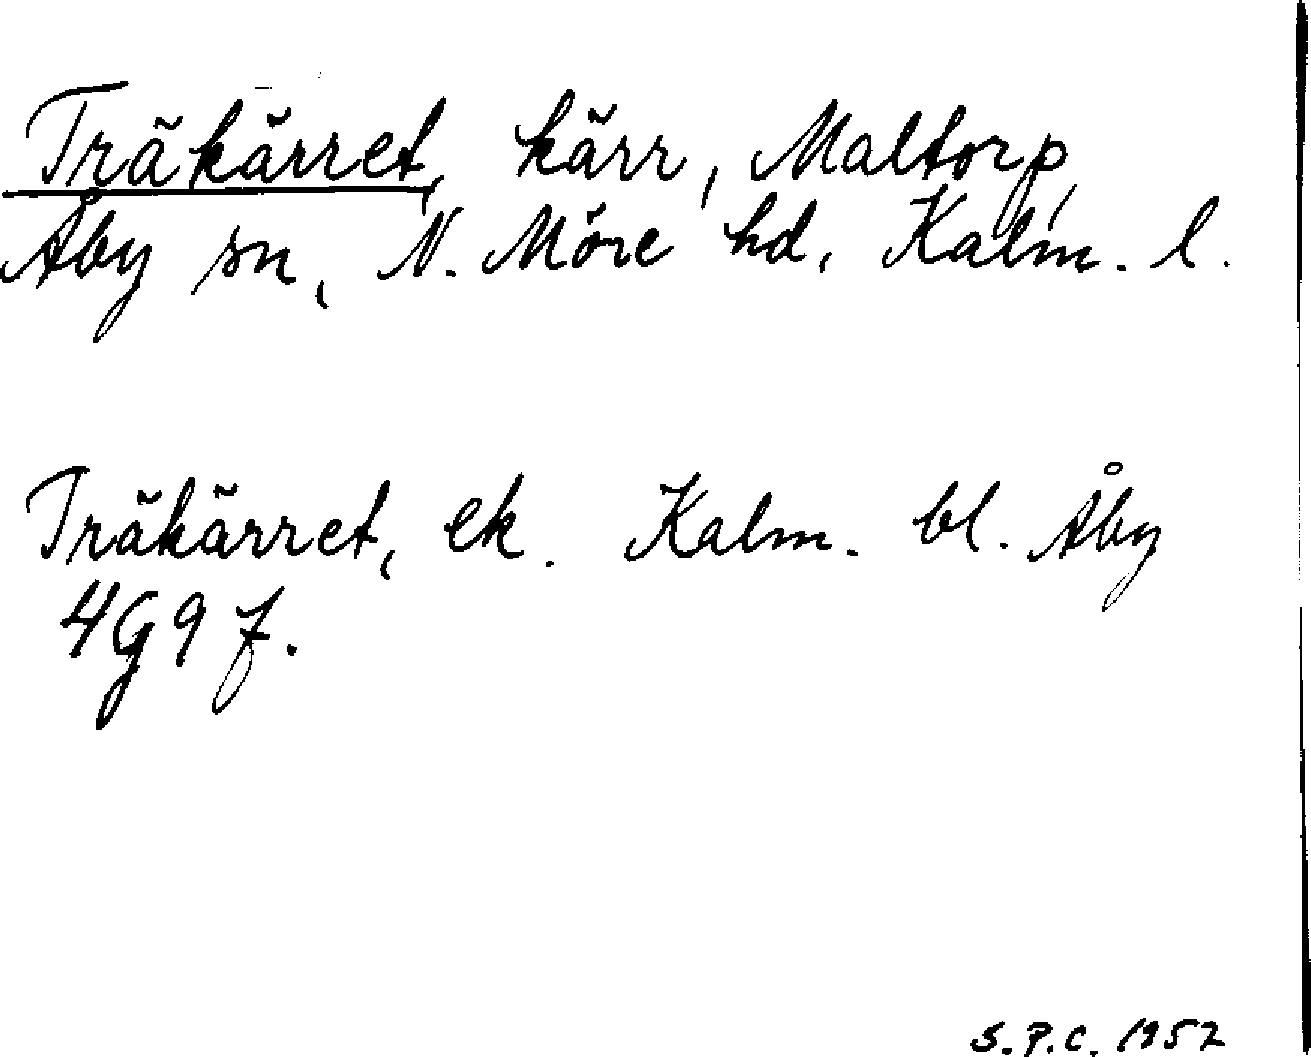 Träkärret, kärr, Maltorp,
Åby sn, N. Möre hd, Kalm. l.
Träkärret, ek. Kalm. bl. Åby
4G9f.
S.P.C. 1952